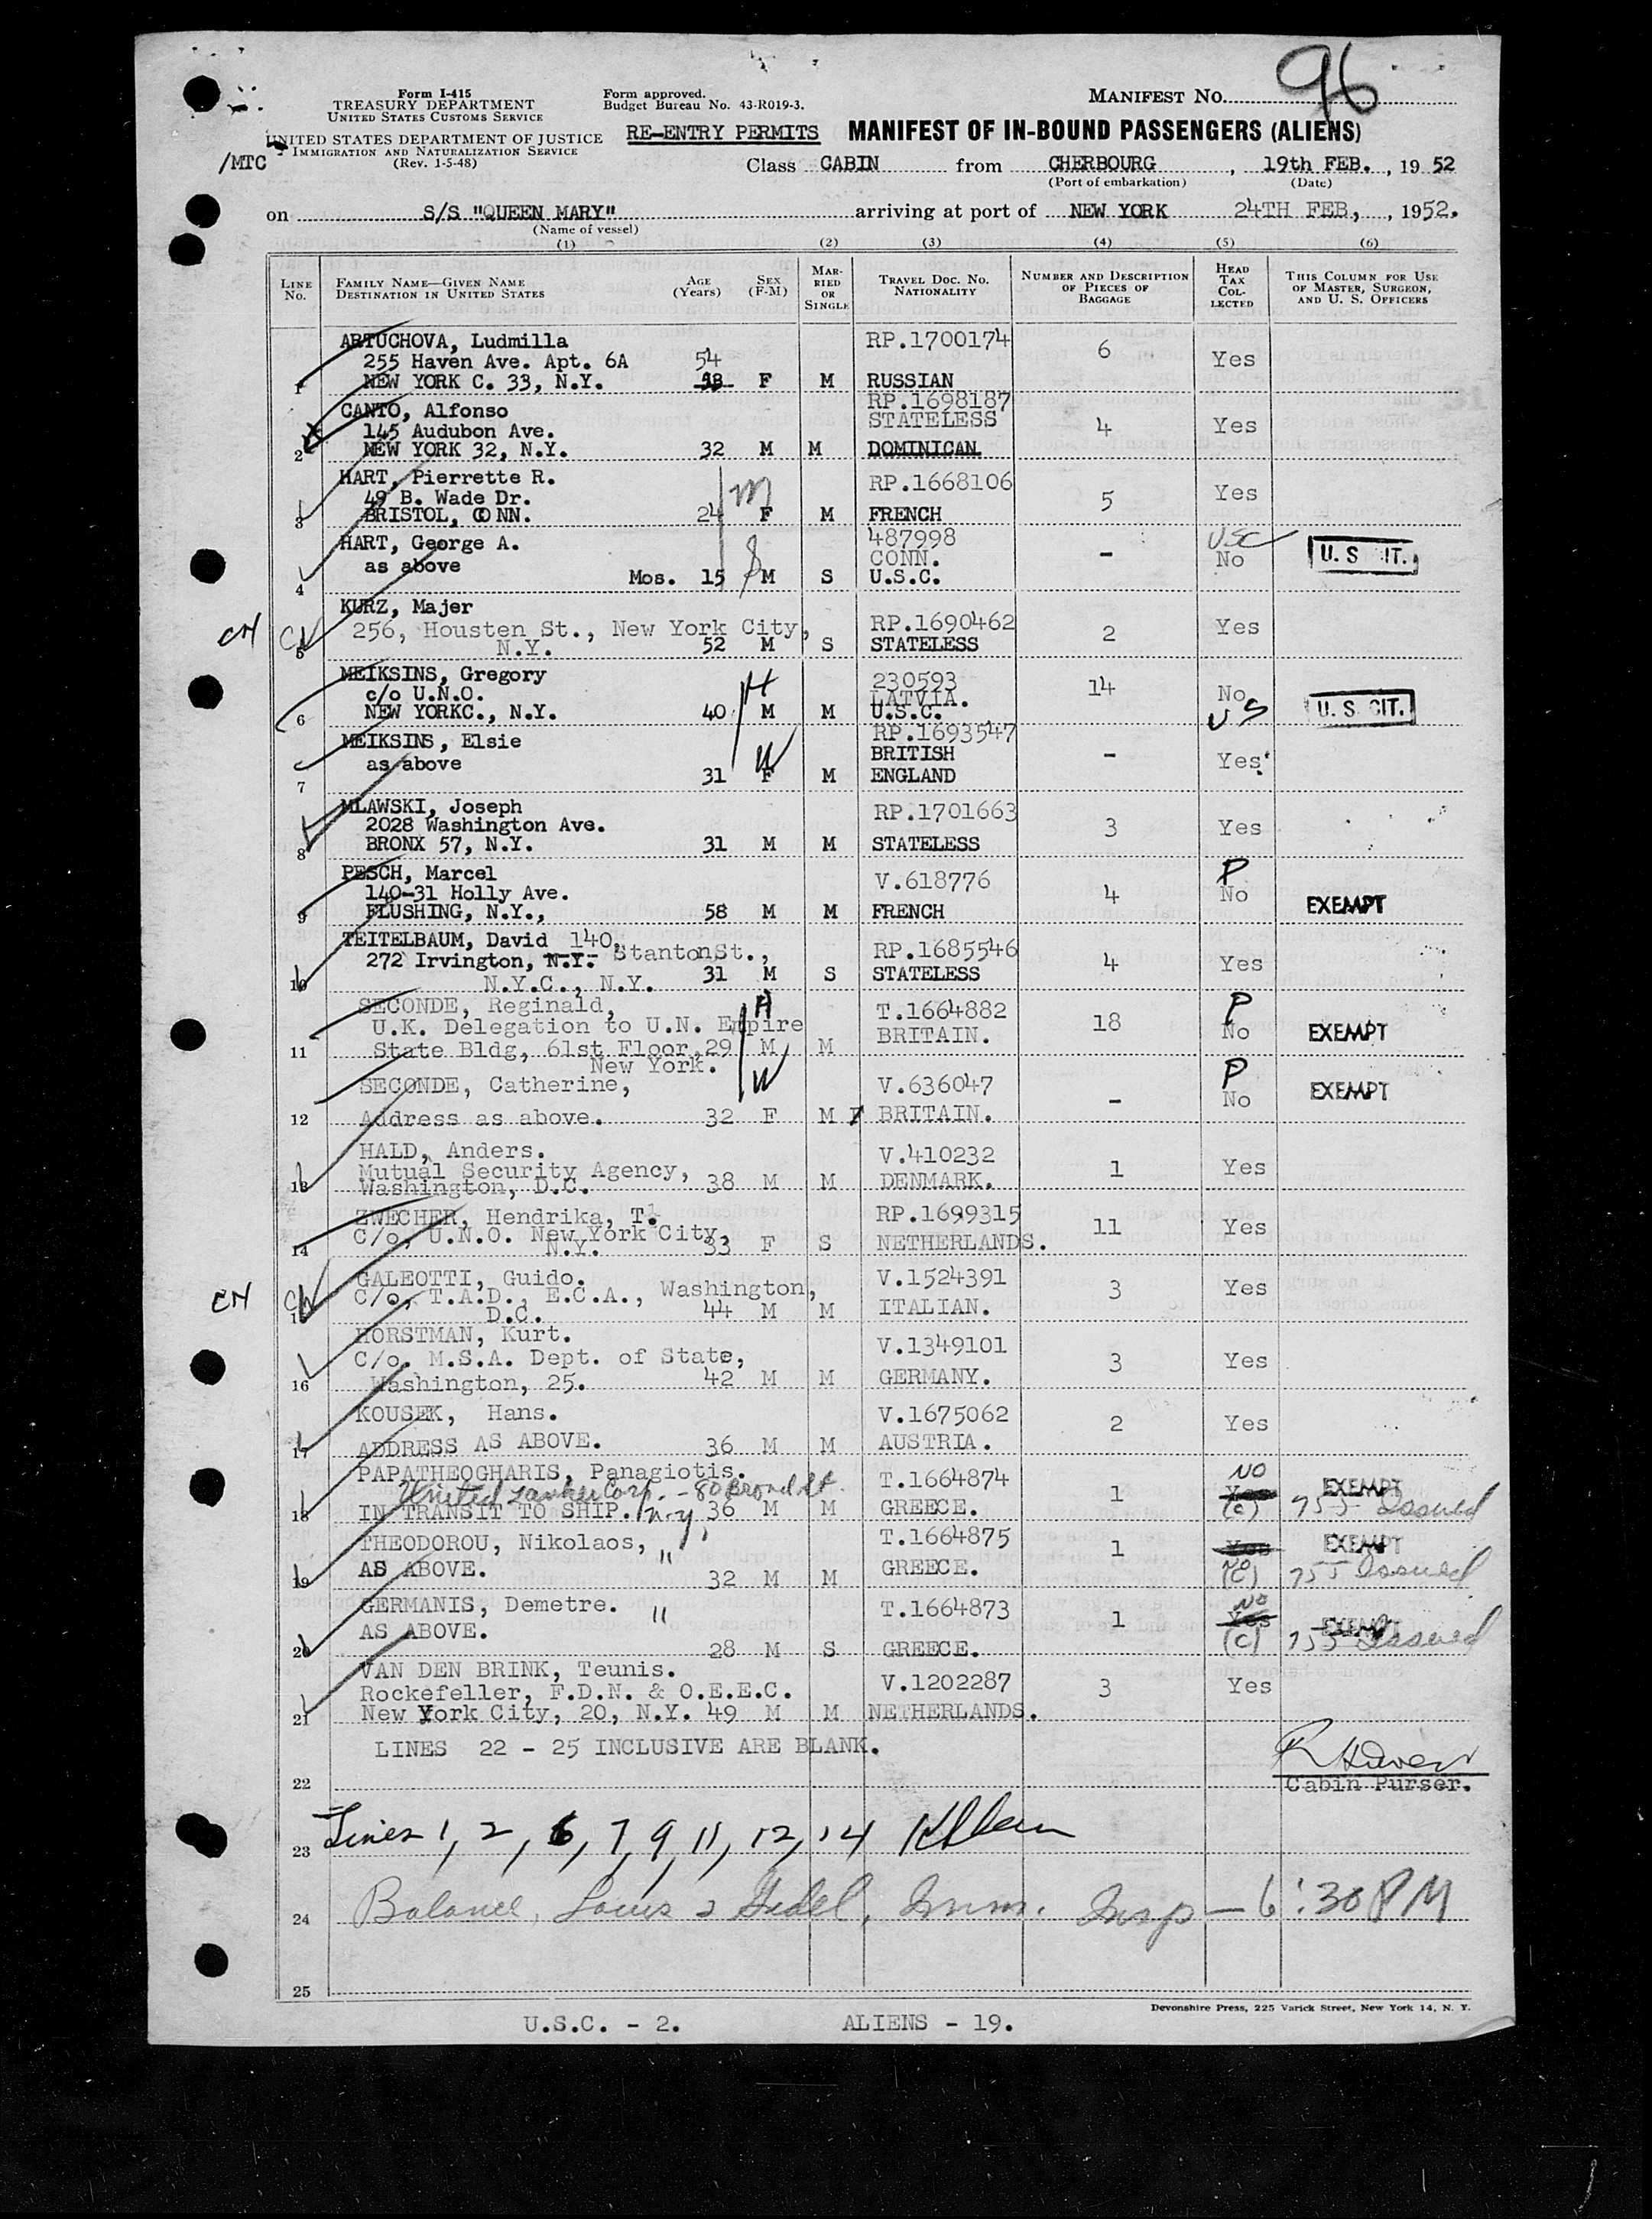 96
Form I-415
TREASURY DEPARTMENT
UNITED STATES CUSTOMS SERVICE
Form approved.
Budget Bureau No. 43-R019-3.
MANIFEST NO.
UNITED STATES DEPARTMENT OF JUSTICE
IMMIGRATION AND NATURALIZATION SERVICE
(Rev. 1-5-48)
/MTC
RE-ENTRY PERMITS MANIFEST OF IN-BOUND PASSENGERS (ALIENS)
Class CABIN from CHERBOURG, 19th FEB., 19 52
(Port of embarkation) (Date)
on S/S "QUEEN MARY" arriving at port of NEW YORK 24TH FEB, , 1952.
(Name of vessel)
(1) (2) (3) (4) (5) (6)
LINE No. FAMILY NAME—GIVEN NAME DESTINATION IN UNITED STATES AGE (Years) SEX (F-M) MARRIED OR SINGLE TRAVEL DOC. NO. NATIONALITY NUMBER AND DESCRIPTION OF PIECES OF BAGGAGE HEAD TAX COLLECTED THIS COLUMN FOR USE OF MASTER, SURGEON, AND U. S. OFFICERS
ARTUCHOVA, Ludmilla RP.1700174 6 Yes
255 Haven Ave. Apt. 6A 54
1 NEW YORK C. 33, N.Y. F M RUSSIAN
CANTO, Alfonso RP.1698187
145 Audubon Ave. STATELESS 4 Yes
2 NEW YORK 32, N.Y. 32 M M DOMINICAN
HART, Pierrette R. RP.1668106 5 Yes
49 B. Wade Dr. m
3 BRISTOL, CONN. 24 F M FRENCH
HART, George A. 487998 USC
as above CONN. - No U. S. CIT.
4 Mos. 15 M S U.S.C.
KURZ, Majer
CN 256, Housten St., New York City, RP.1690462 2 Yes
5 N.Y. 52 M S STATELESS
MEIKSINS, Gregory H 230593 14 No
c/o U.N.O. LATVIA. U. S. CIT.
6 NEW YORKC., N.Y. 40 M M U.S.C. US
MEIKSINS, Elsie RP.1693547
as above W BRITISH - Yes
7 31 F M ENGLAND
MLAWSKI, Joseph RP.1701663
2028 Washington Ave. 3 Yes
8 BRONX 57, N.Y. 31 M M STATELESS
PESCH, Marcel V.618776 P
140-31 Holly Ave. 4 No EXEMPT
9 FLUSHING, N.Y., 58 M M FRENCH
TEITELBAUM, David 140, RP.1685546
272 Irvington, N.Y. StantonSt., 4 Yes
10 N.Y.C., N.Y. 31 M S STATELESS
SECONDE, Reginald, H T.1664882 18 P
U.K. Delegation to U.N. Empire BRITAIN. No EXEMPT
11 State Bldg, 61st Floor, 29 M M
New York.
SECONDE, Catherine, W V.636047 P
12 Address as above. 32 F M BRITAIN. - No EXEMPT
HALD, Anders. V.410232
Mutual Security Agency, 1 Yes
13 Washington, D.C. 38 M M DENMARK.
ZWECHER, Hendrika, T. RP.1699315
C/o, U.N.O. New York City, 11 Yes
14 N.Y. 33 F S NETHERLANDS.
GALEOTTI, Guido. V.1524391
CN C/o, T.A.D., E.C.A., Washington, 3 Yes
15 D.C. 44 M M ITALIAN.
HORSTMAN, Kurt. V.1349101
C/o. M.S.A. Dept. of State, 3 Yes
16 Washington, 25. 42 M M GERMANY.
KOUSEK, Hans. V.1675062 2 Yes
17 ADDRESS AS ABOVE. 36 M M AUSTRIA.
PAPATHEOGHARIS, Panagiotis. T.1664874 NO EXEMPT
United Tanker Corp. - 80 Broad St. 1 Yes
18 IN TRANSIT TO SHIP. N.Y. 36 M M GREECE. (C) 755 Issued
THEODOROU, Nikolaos, " T.1664875 1 Yes EXEMPT
19 AS ABOVE. 32 M M GREECE. NO (C) 755 Issued
GERMANIS, Demetre. " T.1664873 NO
AS ABOVE. 1 Yes EXEMPT
20 28 M S GREECE. (C) 755 Issued
VAN DEN BRINK, Teunis. V.1202287
Rockefeller, F.D.N. & O.E.E.C. 3 Yes
21 New York City, 20, N.Y. 49 M M NETHERLANDS.
LINES 22 - 25 INCLUSIVE ARE BLANK.
22 Cabin Purser.
23 Lines 1, 2, 6, 7, 9, 11, 12, 14
24 Balance, Imm. Insp — 6:30 PM
25
Devonshire Press, 225 Varick Street, New York 14, N. Y.
U.S.C. - 2. ALIENS - 19.